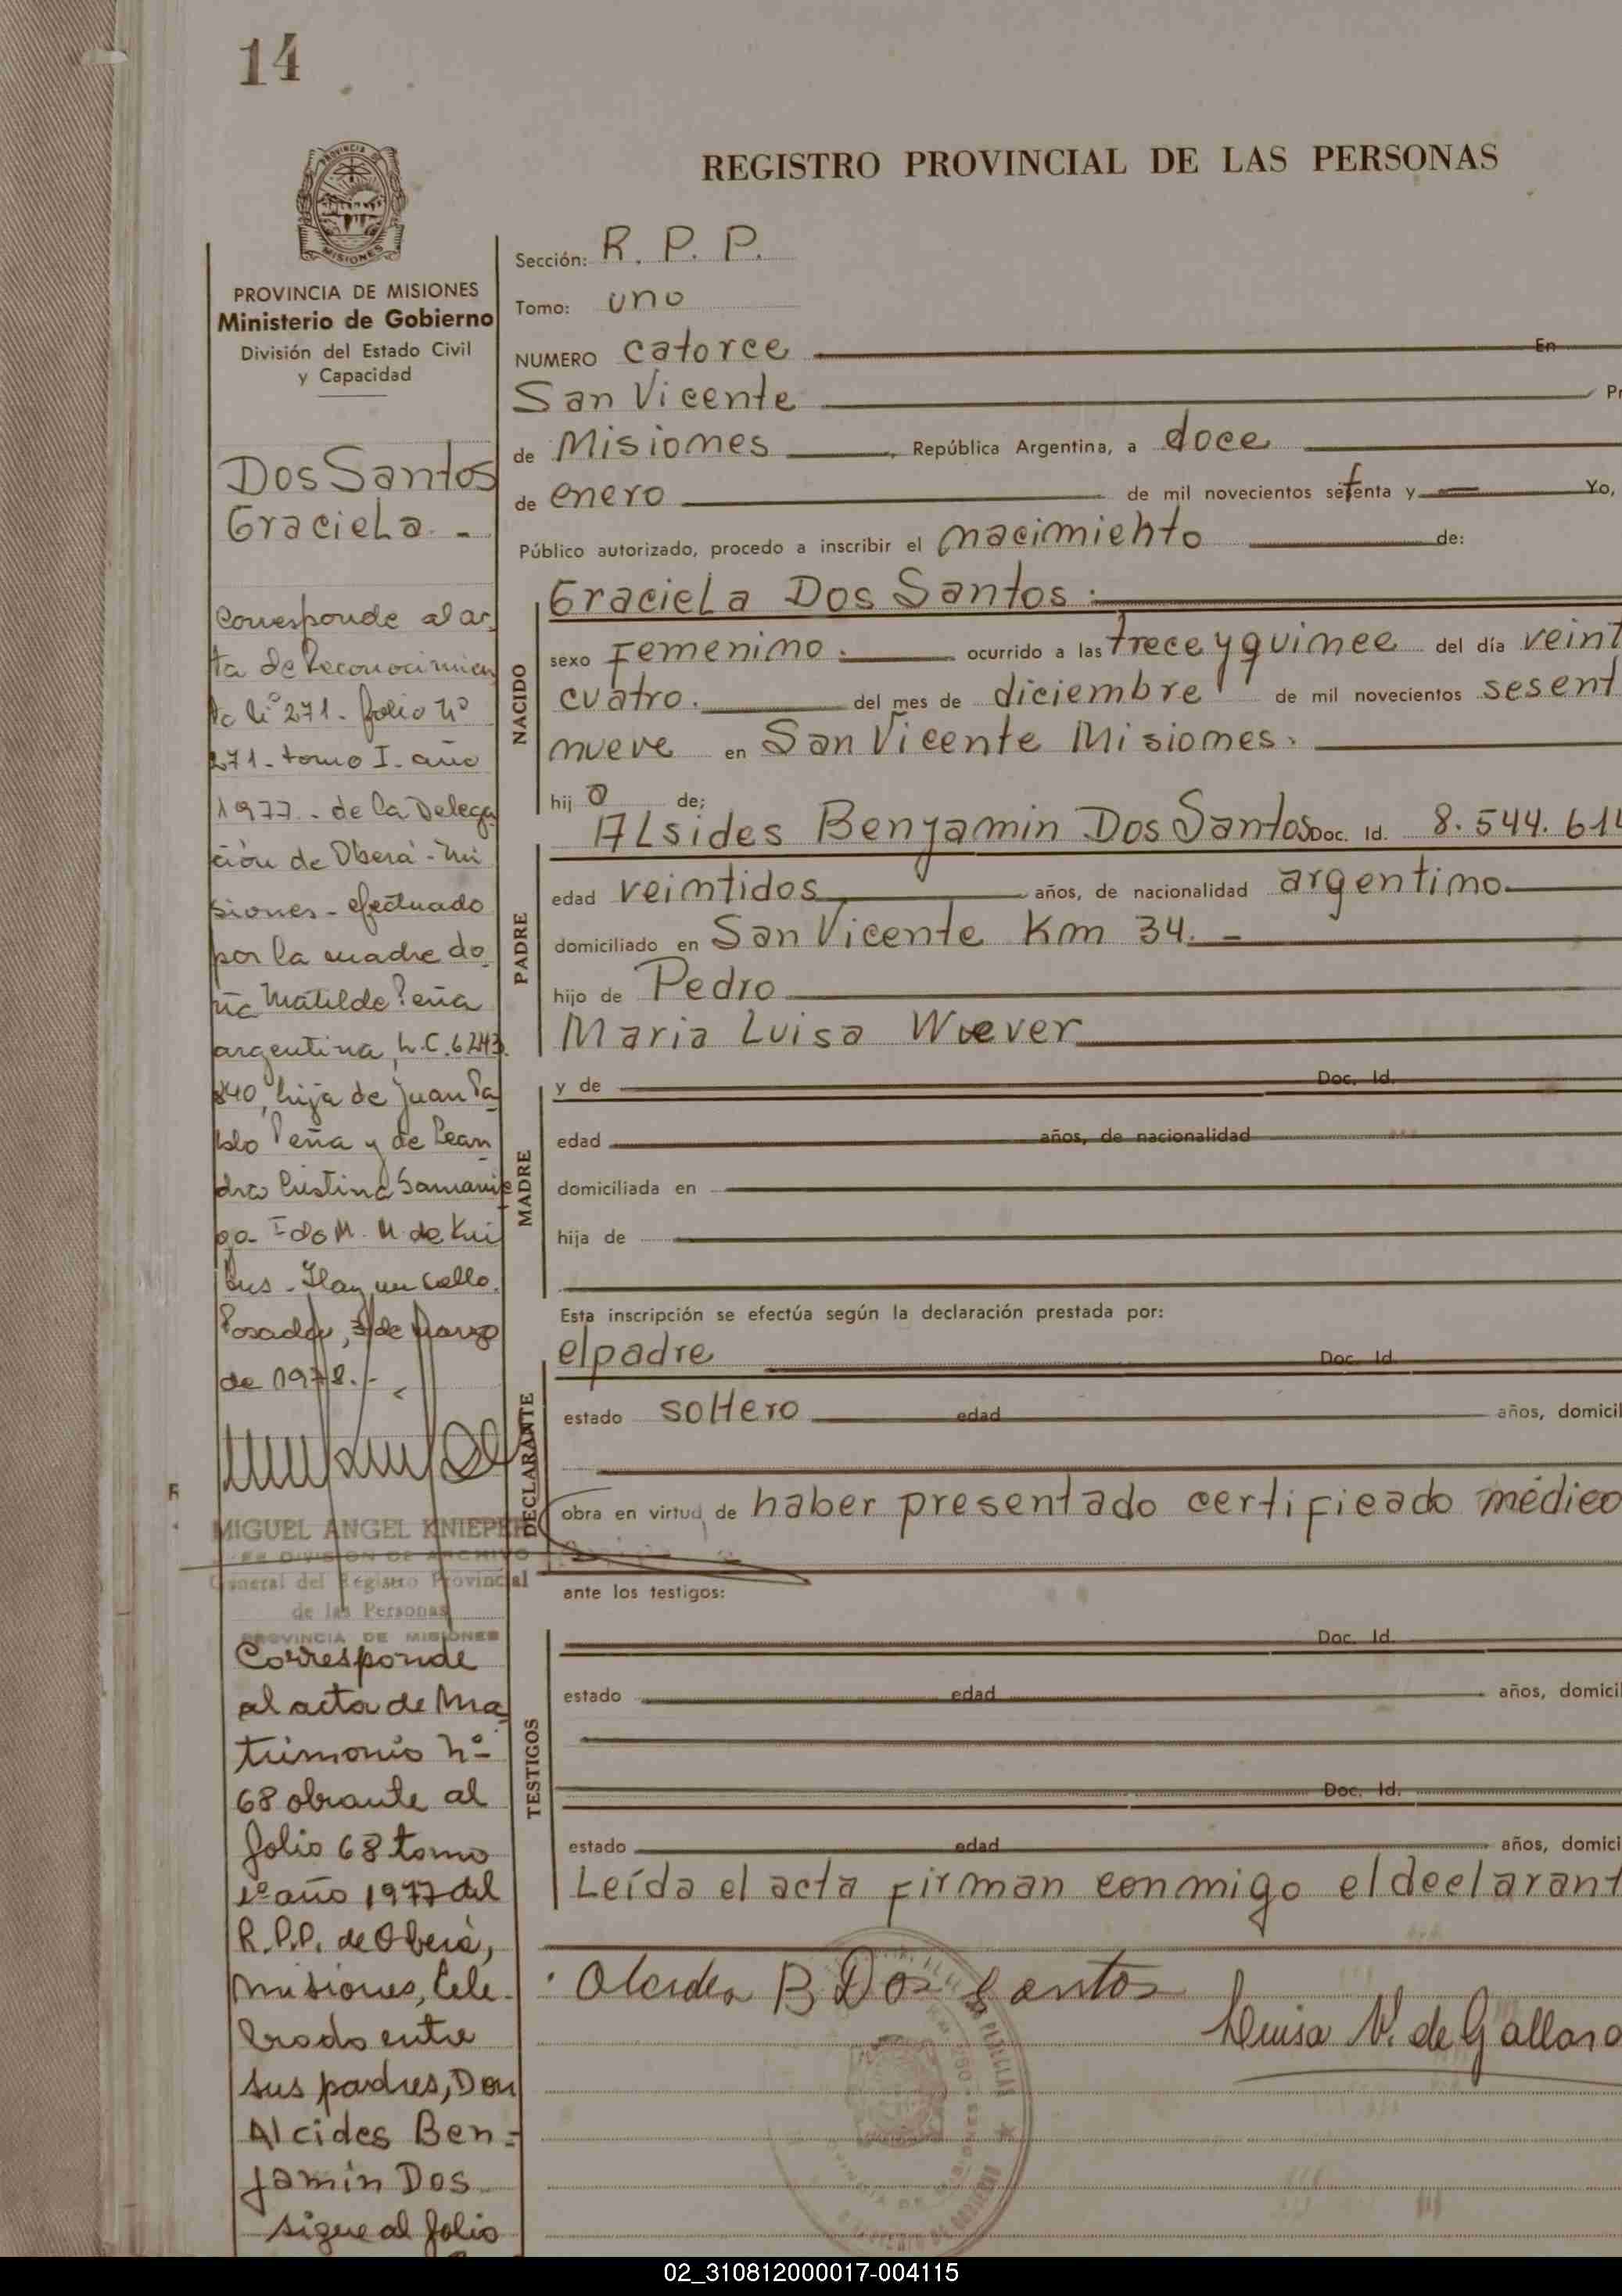 14
PROVINCIA DE
MISIONES
PROVINCIA DE MISIONES
Ministerio de Gobierno
División del Estado Civil
y Capacidad
Dos Santos
Graciela -
Corresponde al ac-
ta de Reconocimien
to Nº 271 - folio Nº
271 - tomo I - año
1977 - de la Delega
ción de Oberá - Mi
siones - efectuado
por la madre do-
ña Matilde Peña
argentina, L.C. 6.243.
840, hija de Juan Pa-
blo Peña y de Lean
dra Cristina Samanie
go - Fdo M. M. de Kui
bus - Hay un sello.
Posadas, 3 de marzo
de 1978.-
MIGUEL ANGEL KNIEPER
DIVISION DE ARCHIVO
General del Registro Provincial
de las Personas
PROVINCIA DE MISIONES
Corresponde
al acta de Ma
trimonio Nº
68 obrante al
folio 68 tomo
1º año 1977 del
R.P.P. de Oberá,
Misiones, Cele-
brado entre
sus padres, Don
Alcides Ben-
jamín Dos
sigue al folio
REGISTRO PROVINCIAL DE LAS PERSONAS
Sección: R. P. P.
Tomo: uno
NUMERO catorce En
San Vicente Pr
de Misiones, República Argentina, a doce
de enero de mil novecientos setenta y Yo,
Público autorizado, procedo a inscribir el nacimiento de:
Graciela Dos Santos:
NACIDO
sexo Femenino. ocurrido a las trece y quince del día veint
cuatro. del mes de diciembre de mil novecientos sesent
nueve en San Vicente Misiones.
hij a de:
Alsides Benyamin Dos Santos Doc. Id. 8.544.614
PADRE
edad veintidos años, de nacionalidad argentino
domiciliado en San Vicente Km 34. -
hijo de Pedro
Maria Luisa Wever
MADRE
y de Doc. Id.
edad años, de nacionalidad
domiciliada en
hija de
Esta inscripción se efectúa según la declaración prestada por:
DECLARANTE
el padre Doc. Id.
estado soltero edad años, domicil
obra en virtud de haber presentado certificado médico
ante los testigos:
TESTIGOS
Doc. Id.
estado edad años, domicil
Doc. Id.
estado edad años, domici
Leída el acta firman conmigo el declarant
Alcides B Dos Santos
Luisa V. de Gallard
02_310812000017-004115